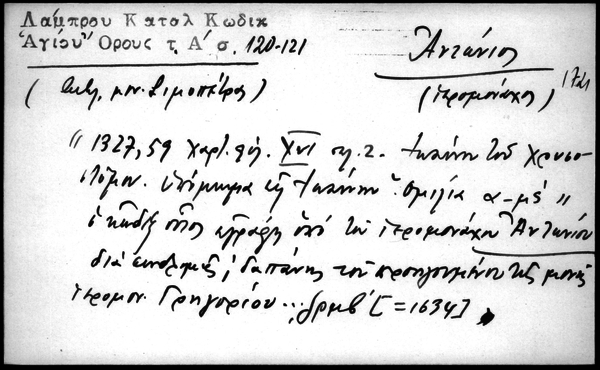 Λάμπρου Καταλ Κωδικ
Ἁγίου Ὄρους τ. Α΄ σ. 120-121
Ἀντώνιος
(βιβλ. μον. Σιμοπέτρας)
(ἱερομόναχος) 1721
"1327,59 χαρτ. φύλ. XVI σχ. 2. Ἰωάννου τοῦ Χρυσο-
στόμου. ὑπόμνημα εἰς Ἰωάννην. Ὁμιλία α-με΄"
ὁ κῶδιξ οὗτος ἐγράφη ὑπὸ τοῦ ἱερομονάχου Ἀντωνίου
διὰ συνδρομῆς, δαπάνης τοῦ προηγουμένου τῆς μονῆς
ἱερομον. Γρηγορίου...; ζρμβ΄ [=1634]